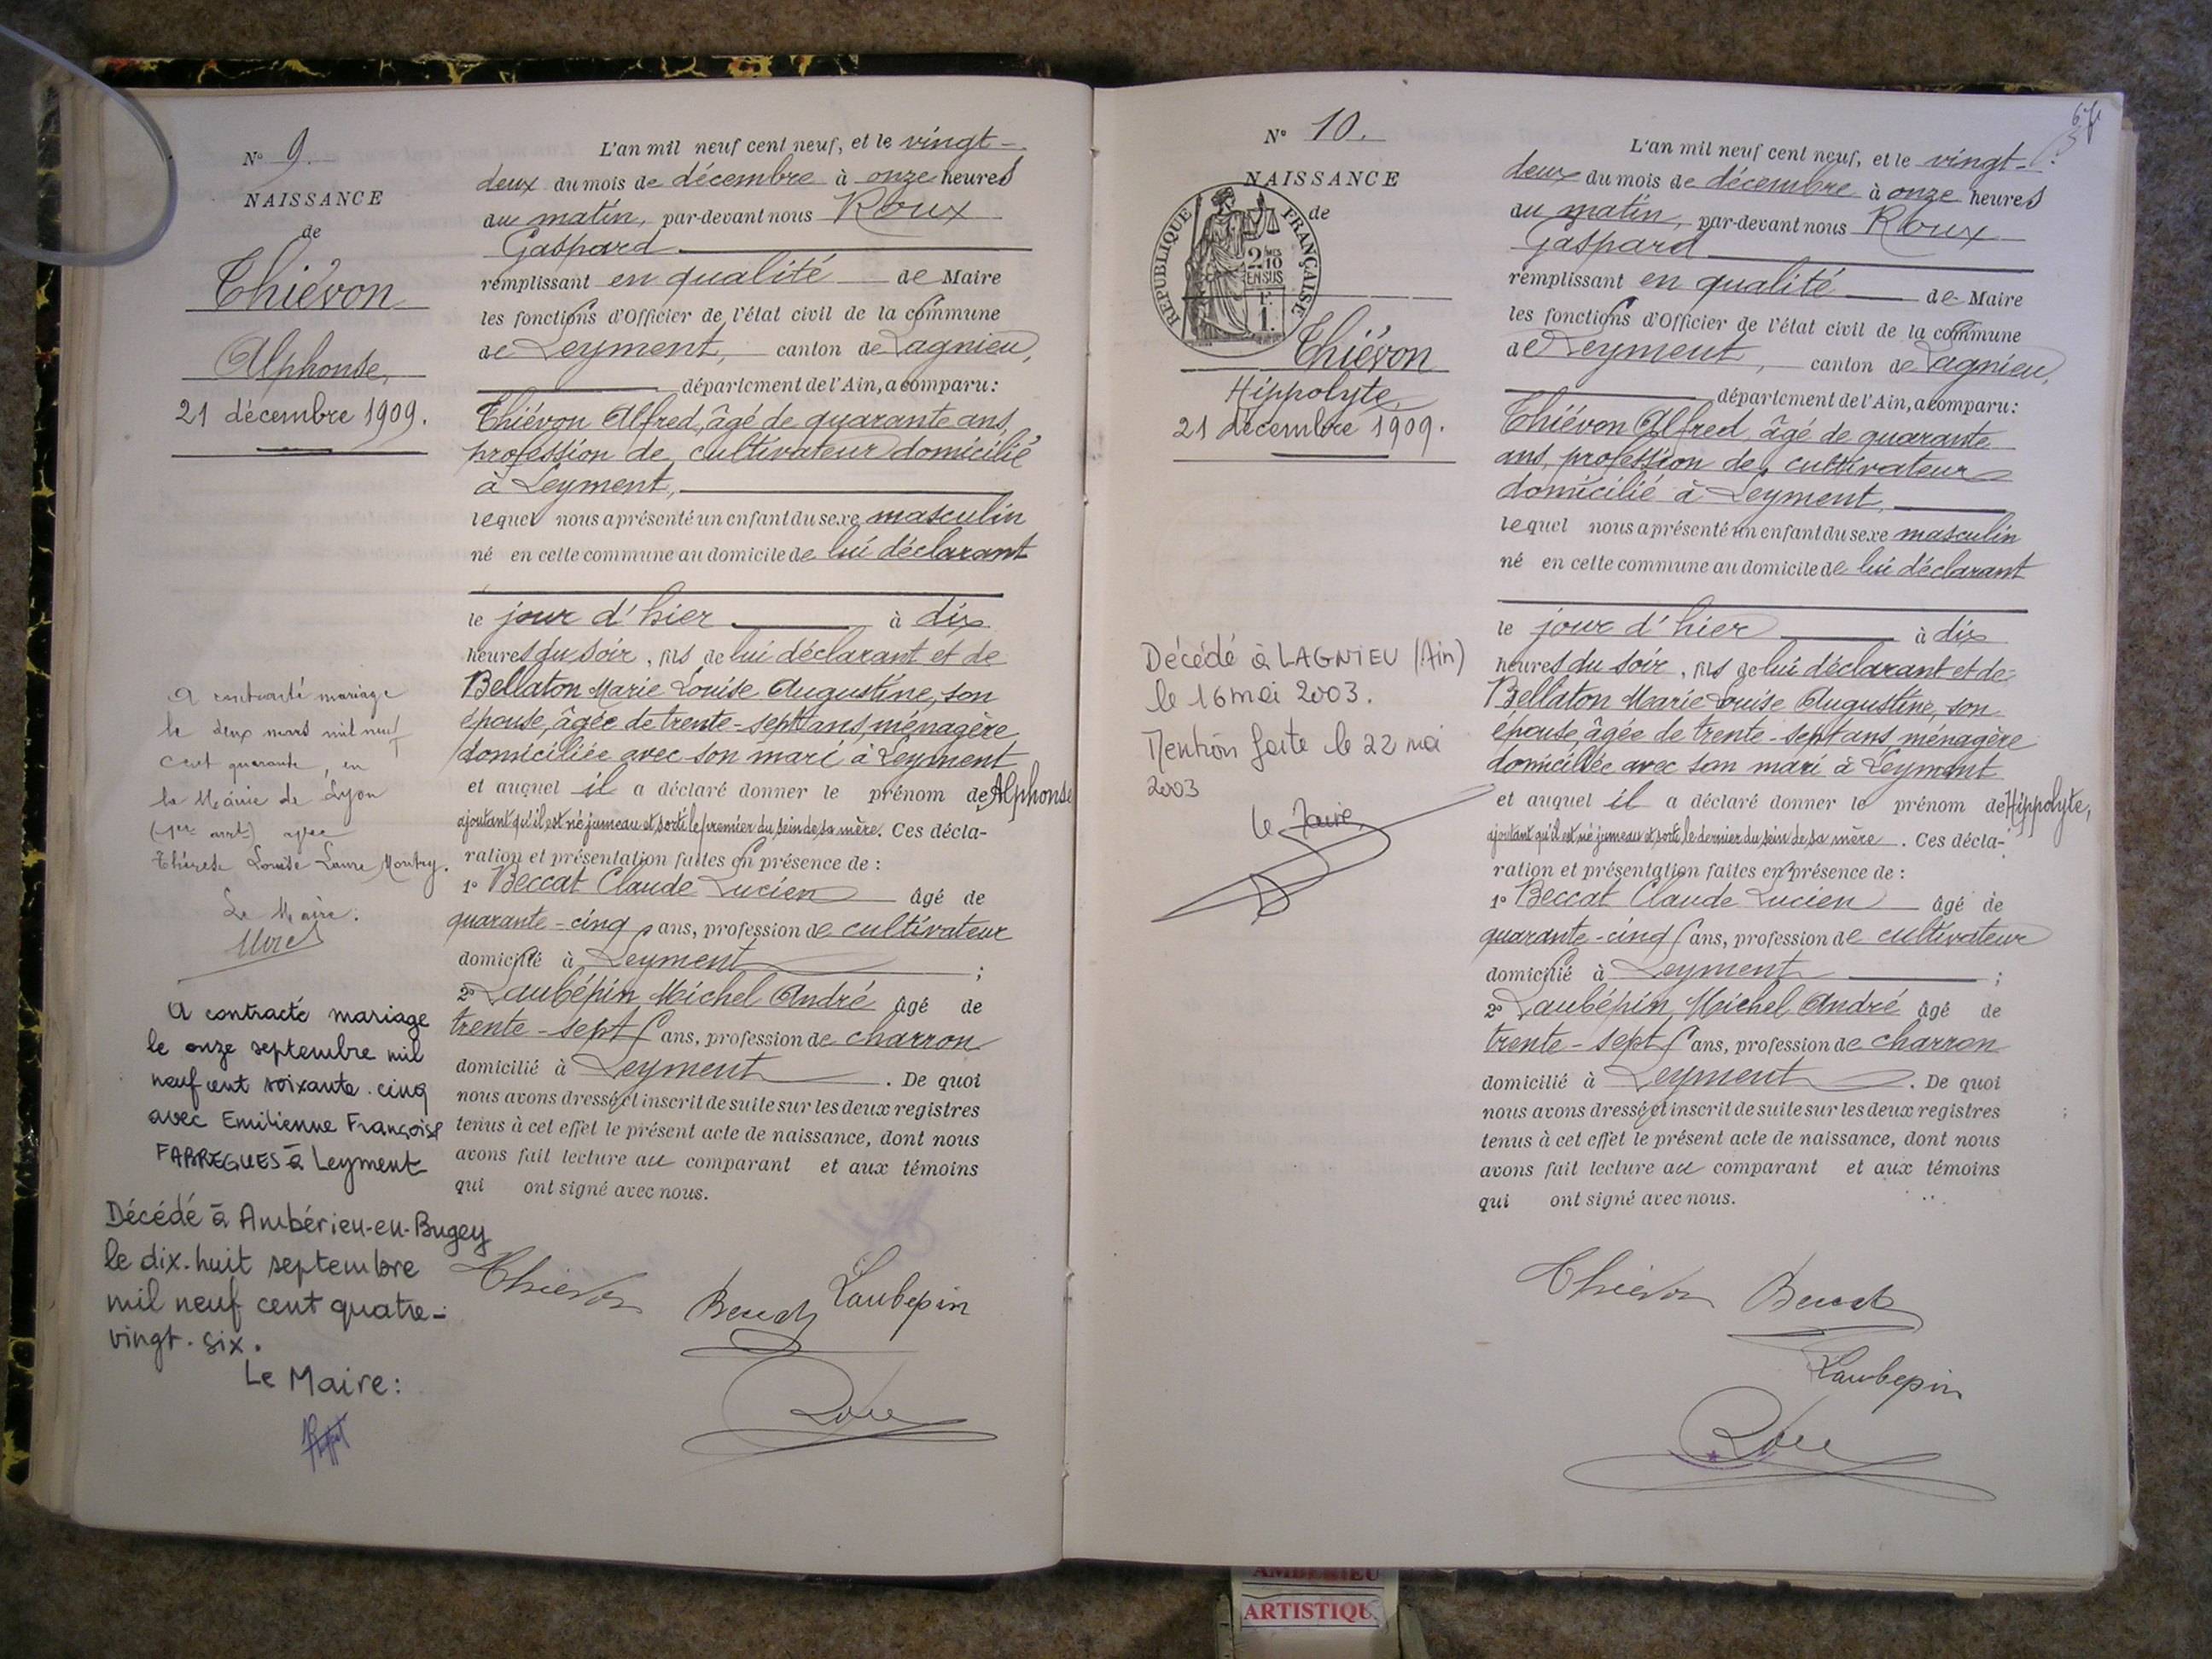 N° 9.
NAISSANCE
de
Thiévon
Alphonse,
21 décembre 1909.
A contracté mariage
le deux mars mil neuf
cent quarante, en
la Mairie de Lyon
(1er arrt) avec
Thérèse Louise Laure
Le Maire.
A contracté mariage
le onze septembre mil
neuf cent soixante-cinq
avec Emilienne Françoise
FABREGUES à Leyment
Décédé à Ambérieu-en-Bugey
le dix-huit septembre
mil neuf cent quatre-
vingt-six.
Le Maire:
L'an mil neuf cent neuf, et le vingt-
deux du mois de décembre à onze heures
du matin, par-devant nous Roux
Gaspard
remplissant en qualité de Maire
les fonctions d'Officier de l'état civil de la commune
de Leyment, canton de Lagnieu,
département de l'Ain, a comparu:
Thiévon Alfred, âgé de quarante ans,
profession de cultivateur domicilié
à Leyment,
lequel nous a présenté un enfant du sexe masculin
né en cette commune au domicile de lui déclarant
le jour d'hier à dix
heures du soir, fils de lui déclarant et de
Bellaton Marie Louise Augustine, son
épouse, âgée de trente-sept ans, ménagère
domiciliée avec son mari à Leyment
et auquel il a déclaré donner le prénom de Alphonse
ajoutant qu'il est né jumeau et sorti le premier du sein de sa mère. Ces décla-
ration et présentation faites en présence de :
1° Beccat Claude Lucien âgé de
quarante-cinq ans, profession de cultivateur
domicilié à Leyment ;
2° Laubépin Michel André âgé de
trente-sept ans, profession de charron
domicilié à Leyment . De quoi
nous avons dressé et inscrit de suite sur les deux registres
tenus à cet effet le présent acte de naissance, dont nous
avons fait lecture au comparant et aux témoins
qui ont signé avec nous.
Thievon
Laubepin
Roux
N° 10.
NAISSANCE
de
REPUBLIQUE FRANÇAISE
2 10
EN SUS
Thiévon
Hippolyte,
21 décembre 1909.
Décédé à LAGNIEU (Ain)
le 16 mai 2003.
Mention faite le 22 mai
2003
Le Maire,
L'an mil neuf cent neuf, et le vingt-
deux du mois de décembre à onze heures
du matin, par-devant nous Roux
Gaspard
remplissant en qualité de Maire
les fonctions d'Officier de l'état civil de la commune
de Leyment, canton de Lagnieu,
département de l'Ain, a comparu:
Thiévon Alfred, âgé de quarante
ans, profession de cultivateur
domicilié à Leyment,
lequel nous a présenté un enfant du sexe masculin
né en cette commune au domicile de lui déclarant
le jour d'hier à dix
heures du soir, fils de lui déclarant et de
Bellaton Marie Louise Augustine, son
épouse, âgée de trente-sept ans, ménagère
domiciliée avec son mari à Leyment
et auquel il a déclaré donner le prénom de Hippolyte,
ajoutant qu'il est né jumeau et sorti le dernier du sein de sa mère . Ces décla-
ration et présentation faites en présence de :
1° Beccat Claude Lucien âgé de
quarante-cinq ans, profession de cultivateur
domicilié à Leyment ;
2° Laubépin Michel André âgé de
trente-sept ans, profession de charron
domicilié à Leyment . De quoi
nous avons dressé et inscrit de suite sur les deux registres
tenus à cet effet le présent acte de naissance, dont nous
avons fait lecture au comparant et aux témoins
qui ont signé avec nous.
Thievon
Laubepin
Roux
AMBERIEU
ARTISTIQU